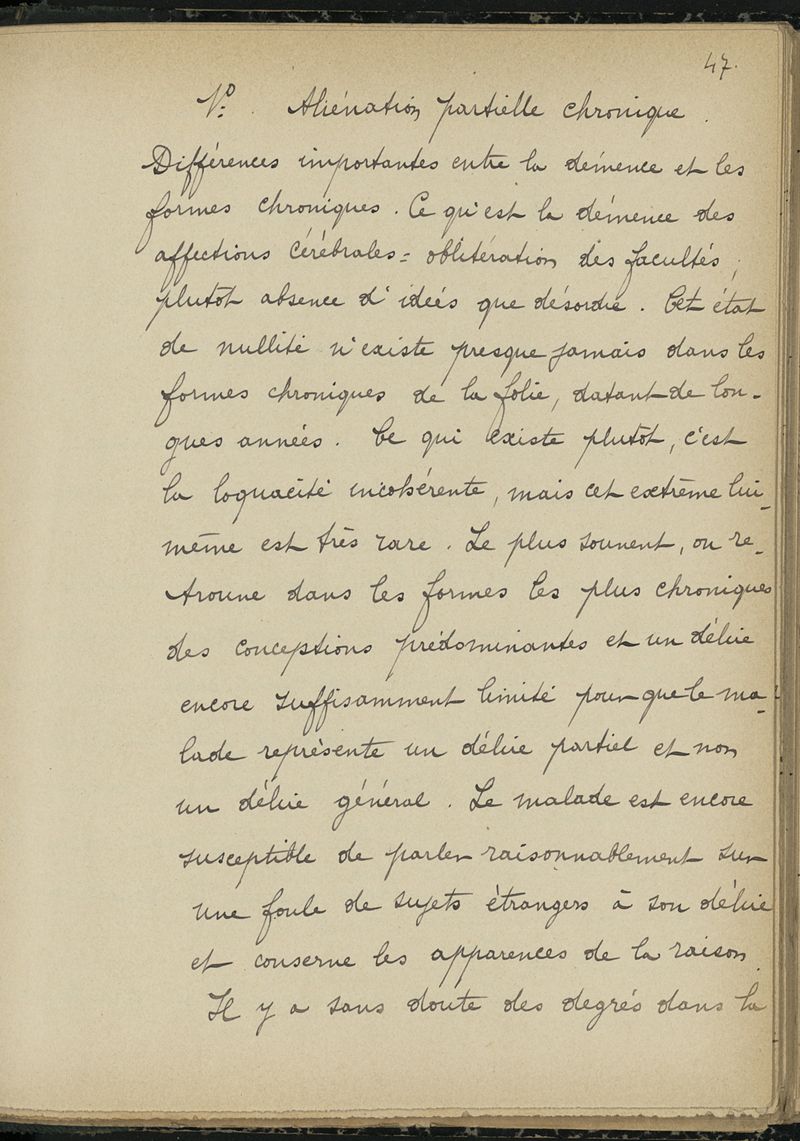 47.
V°. Aliénation partielle chronique.
Différences importantes entre la démence et les
formes chroniques. Ce qu'est la démence des
affections cérébrales = oblitération des facultés,
plutôt absence d'ideés que désordre. Cet état
de nullité n'existe presque jamais dans les
formes chroniques de la folie, datant de lon-
gues années. Ce qui existe plutôt, c'est
la loquacité incohérente, mais cet extrême lui-
même est très rare. Le plus souvent, on re-
trouve dans les formes les plus chroniques
des conceptions prédominantes et un délire
encore suffisamment limité pour que le ma-
lade représente un délire partiel et non
un délire général. Le malade est encore
susceptible de parler raisonnablement sur
une foule de sujets étrangers à son délire
et conserve les apparences de la raison.
Il y a sans doute des degrés dans la